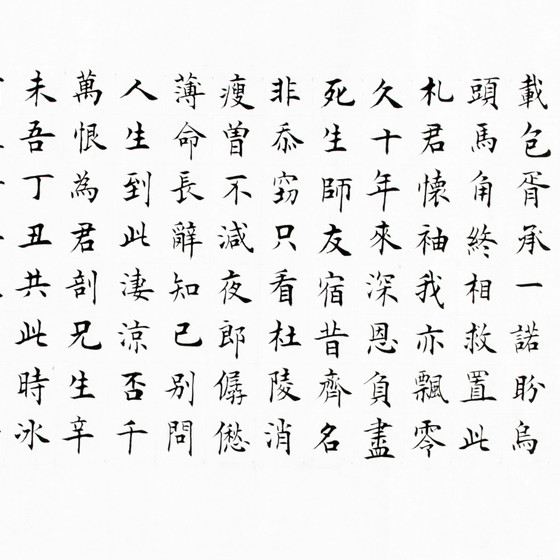 載包胥承一諾盼烏
頭馬角終相救置此
札君懷袖我亦飄零
久十年來深恩負盡
死生師友宿昔齊名
非忝窃只看杜陵消
瘦曾不減夜郎僝僽
薄命長辭知已別問
人生到此淒涼否千
萬恨為君剖兄生辛
未吾丁丑共此時冰